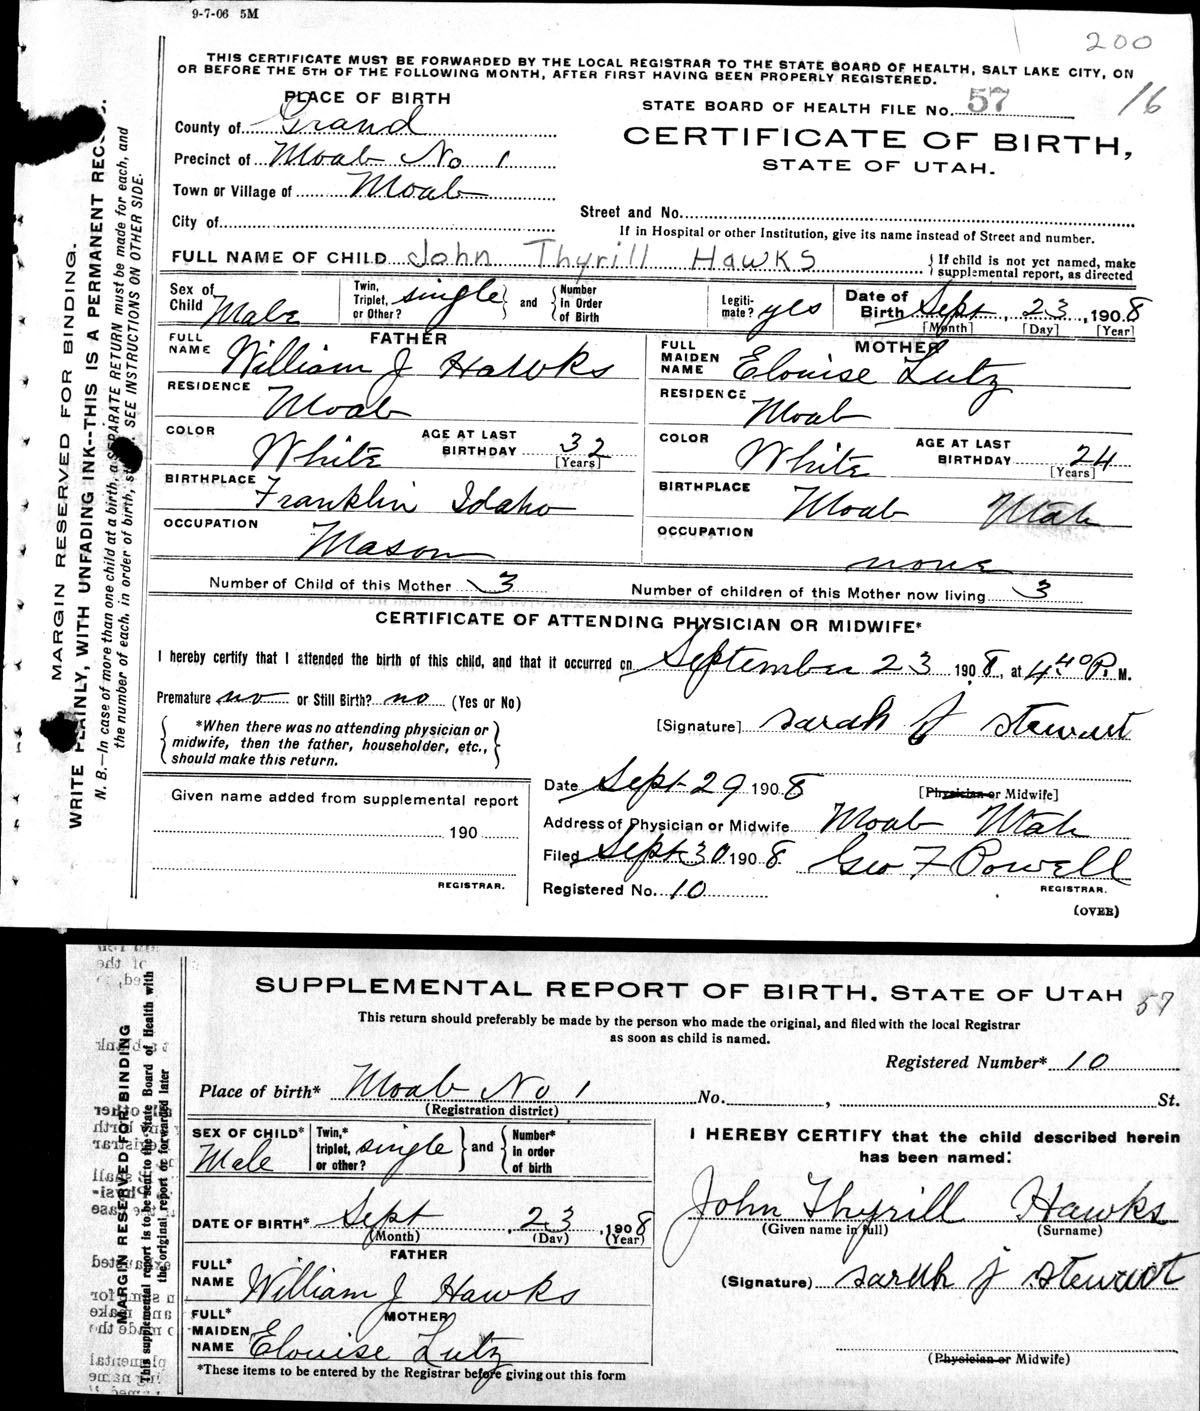 9-7-06 5M
200
THIS CERTIFICATE MUST BE FORWARDED BY THE LOCAL REGISTRAR TO THE STATE BOARD OF HEALTH, SALT LAKE CITY, ON
OR BEFORE THE 5TH OF THE FOLLOWING MONTH, AFTER FIRST HAVING BEEN PROPERLY REGISTERED.
PLACE OF BIRTH
STATE BOARD OF HEALTH FILE No. 57
16
County of Grand
CERTIFICATE OF BIRTH,
Precinct of Moab No 1
STATE OF UTAH.
Town or Village of Moab
City of
Street and No.
If in Hospital or other Institution, give its name instead of Street and number.
FULL NAME OF CHILD John Thyrill Hawks
{If child is not yet named, make
supplemental report, as directed
Sex of Child Male
Twin, Triplet, or Other? single} and {Number in Order of Birth
Legiti-mate? yes
Date of Birth Sept. 23, 1908
[Month] [Day] [Year]
FATHER
FULL NAME William J Hawks
MOTHER
FULL MAIDEN NAME Elouise Lutz
RESIDENCE Moab
RESIDENCE Moab
COLOR White AGE AT LAST BIRTHDAY 32 [Years]
COLOR White AGE AT LAST BIRTHDAY 24 [Years]
BIRTHPLACE Franklin Idaho
BIRTHPLACE Moab Utah
OCCUPATION Mason
OCCUPATION none
Number of Child of this Mother 3
Number of children of this Mother now living 3
CERTIFICATE OF ATTENDING PHYSICIAN OR MIDWIFE*
I hereby certify that I attended the birth of this child, and that it occurred on September 23 1908, at 4 40 P. M.
Premature no or Still Birth? no (Yes or No)
{*When there was no attending physician or
midwife, then the father, householder, etc.,
should make this return.}
[Signature] sarah J stewart
[Physician or Midwife]
Given name added from supplemental report
190
REGISTRAR.
Date Sept 29 1908
Address of Physician or Midwife Moab Utah
Filed Sept 30 1908 Geo F Powell
REGISTRAR.
Registered No. 10
(OVER)
MARGIN RESERVED FOR BINDING.
WRITE PLAINLY, WITH UNFADING INK--THIS IS A PERMANENT
N. B.—In case of more than one child at a birth, a SEPARATE RETURN must be made for each, and
the number of each, in order of birth, SEE INSTRUCTIONS ON OTHER SIDE.
SUPPLEMENTAL REPORT OF BIRTH. STATE OF UTAH
57
This return should preferably be made by the person who made the original, and filed with the local Registrar
as soon as child is named.
Registered Number* 10
Place of birth* Moab No 1 No. , St.
(Registration district)
SEX OF CHILD* Male
Twin,* triplet, or other? single} and {Number* in order of birth
I HEREBY CERTIFY that the child described herein
has been named:
DATE OF BIRTH* Sept, 23, 1908
(Month) (Day) (Year)
John Thyrill Hawks
(Given name in full) (Surname)
FATHER
FULL* NAME William J Hawks
(Signature) sarah J stewart
MOTHER
FULL* MAIDEN NAME Elouise Lutz
(Physician or Midwife)
*These items to be entered by the Registrar before giving out this form
MARGIN RESERVED FOR BINDING
This supplemental report is to be sent to the State Board of Health with
the original report or forwarded later